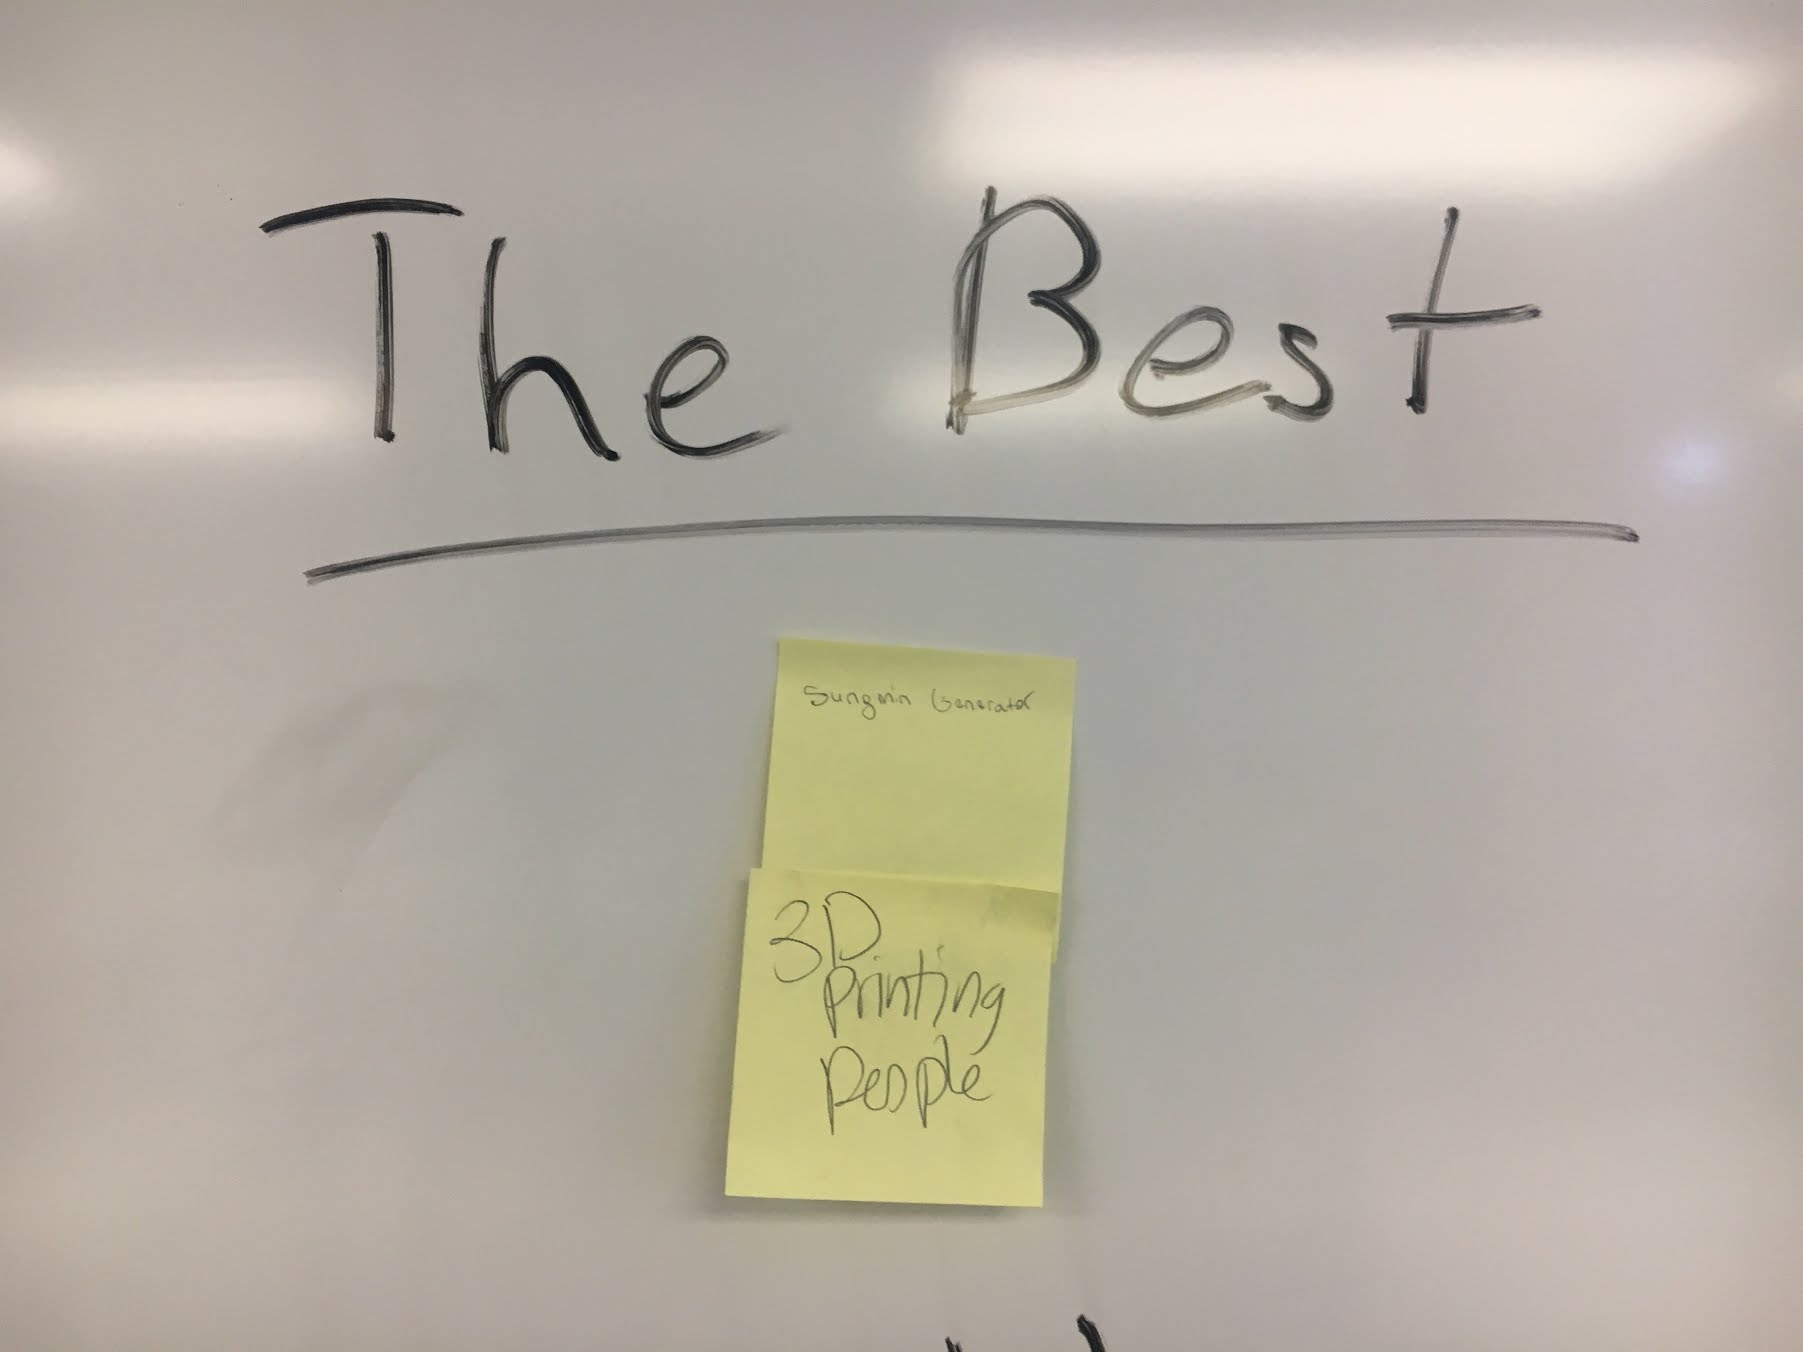 The Best
Sungmin Generator
3D
printing
people